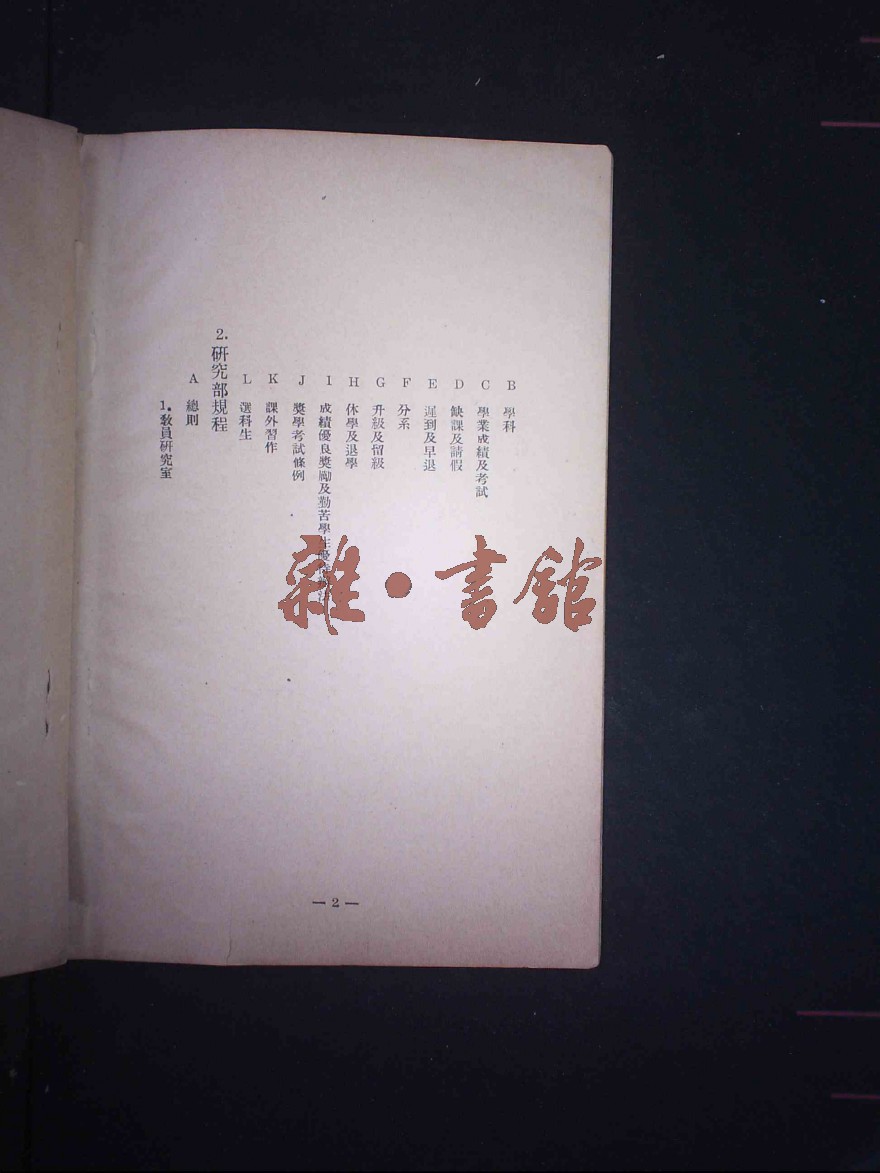 B 學科
C 學業成績及考試
D 缺課及請假
E 遲到及早退
F 分系
G 升級及留級
H 休學及退學
I 成績優良獎勵及勤苦學生優待辦法
J 獎學考試條例
K 課外習作
L 選科生
2. 研究部規程
A 總則
1. 敎員研究室
— 2 —
雜·書館